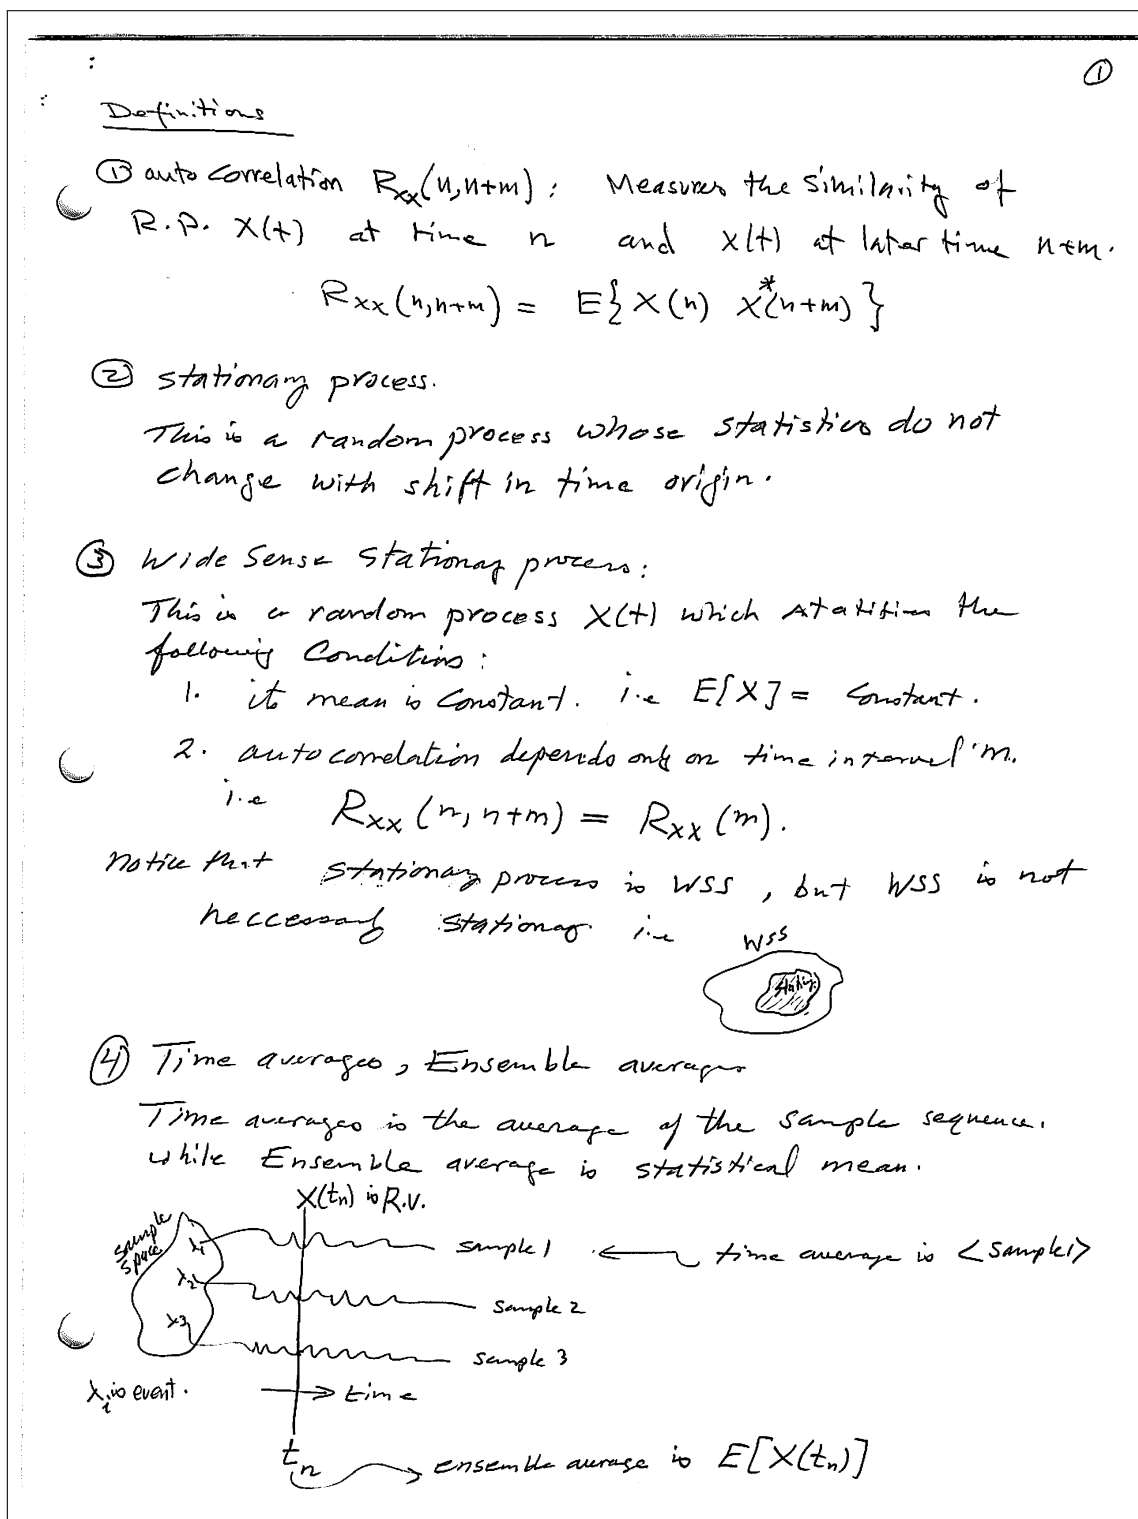 ①
Definitions
① auto correlation Rxx(n,n+m): Measures the Similarity of
R.P. X(t) at time n and X(t) at later time n+m.
Rxx(n,n+m) = E{X(n) X*(n+m)}
② stationary process.
This is a random process whose statistics do not
change with shift in time origin.
③ Wide Sense Stationary process:
This is a random process X(t) which statisfies the
following Conditions:
1. its mean is Constant. i.e E[X] = Constant.
2. autocorrelation depends only on time interval m.
i.e Rxx(n,n+m) = Rxx(m).
notice that stationary process is WSS, but WSS is not
neccessary stationary i.e
WSS
④ Time averages, Ensemble averages
Time averages is the average of the sample sequence.
while Ensemble average is statistical mean.
X(tn) is R.V.
sample space
λ1
sample 1
time average is <sample1>
λ2
sample 2
λ3
sample 3
λi is event.
time
tn
ensemble average is E[X(tn)]